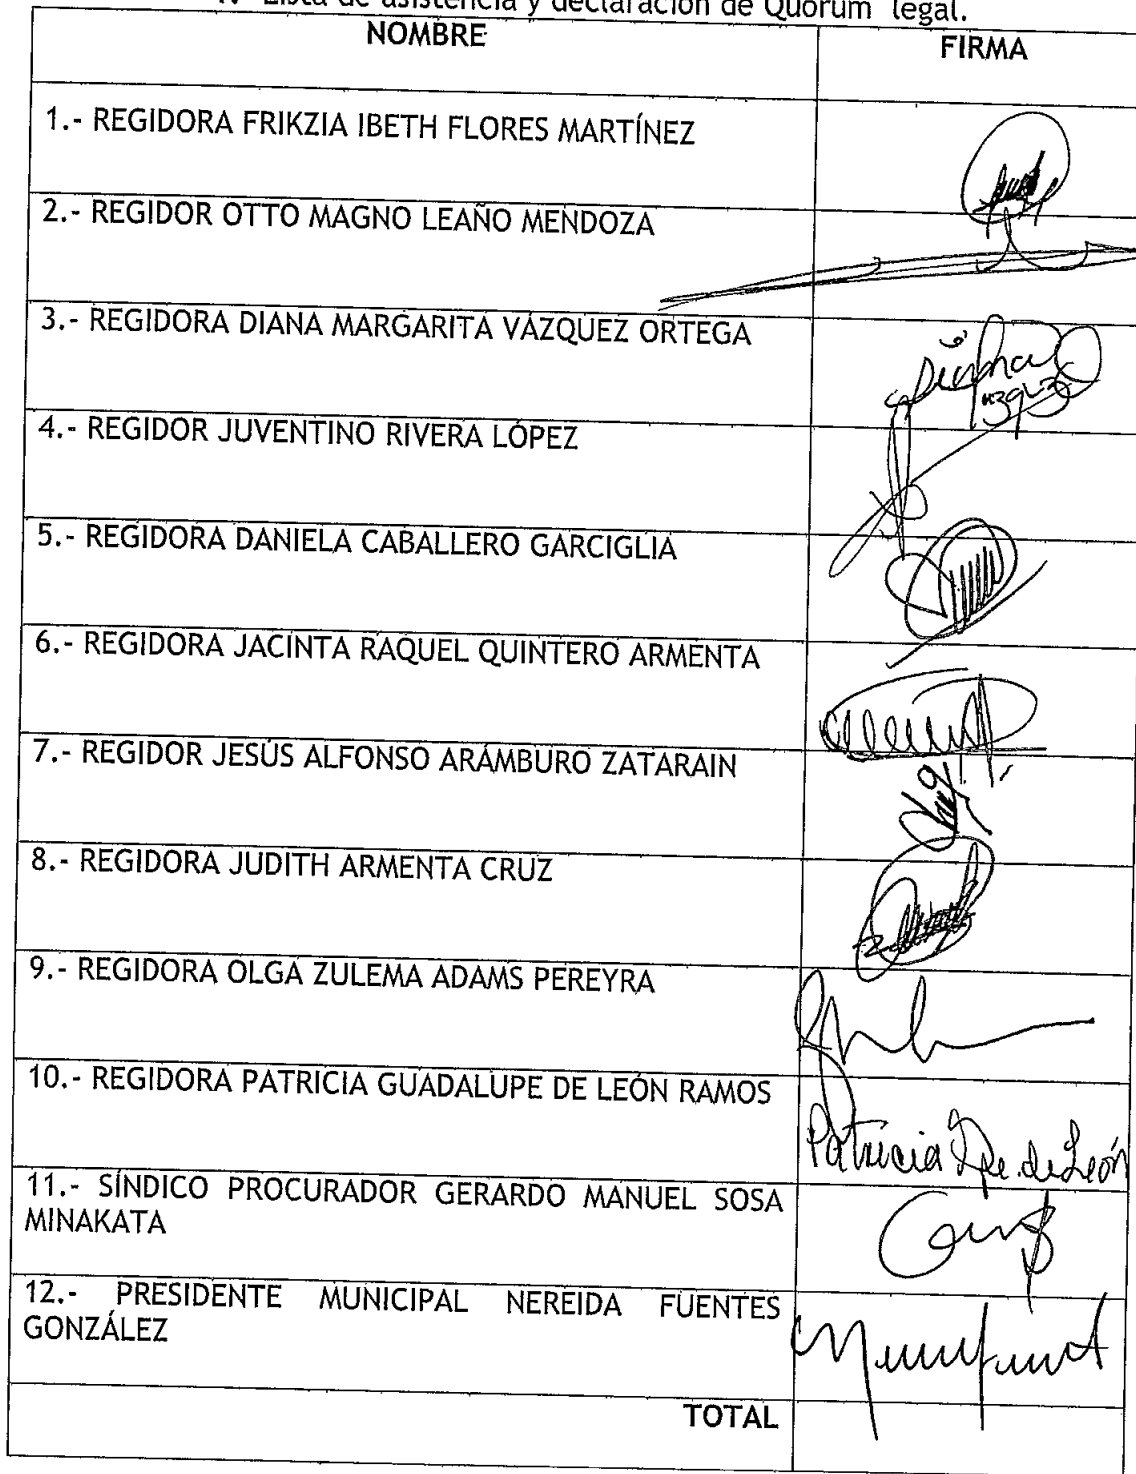 Lista de asistencia y declaración de Quórum legal.
NOMBRE
FIRMA
1.- REGIDORA FRIKZIA IBETH FLORES MARTÍNEZ
2.- REGIDOR OTTO MAGNO LEAÑO MENDOZA
3.- REGIDORA DIANA MARGARITA VÁZQUEZ ORTEGA
4.- REGIDOR JUVENTINO RIVERA LÓPEZ
5.- REGIDORA DANIELA CABALLERO GARCIGLIA
6.- REGIDORA JACINTA RAQUEL QUINTERO ARMENTA
7.- REGIDOR JESÚS ALFONSO ARÁMBURO ZATARAIN
8.- REGIDORA JUDITH ARMENTA CRUZ
9.- REGIDORA OLGA ZULEMA ADAMS PEREYRA
10.- REGIDORA PATRICIA GUADALUPE DE LEÓN RAMOS
Patricia Gpe. de León
11.- SÍNDICO PROCURADOR GERARDO MANUEL SOSA
MINAKATA
12.- PRESIDENTE MUNICIPAL NEREIDA FUENTES
GONZÁLEZ
TOTAL